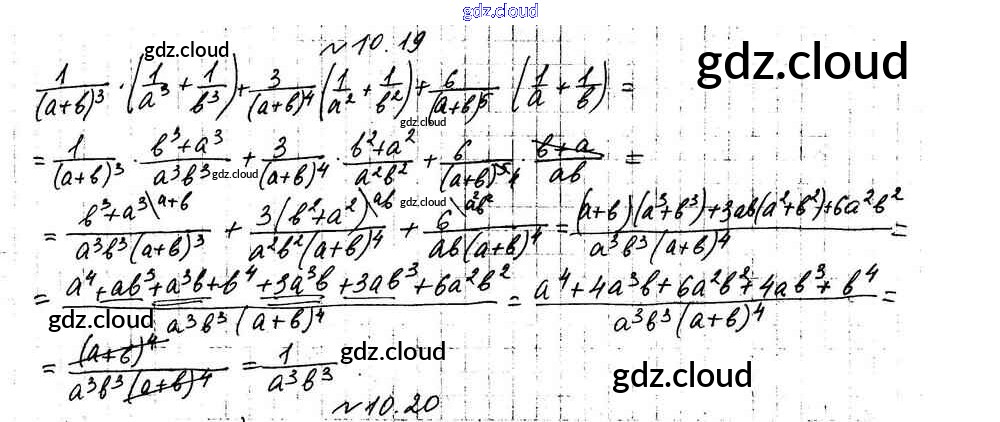 gdz.cloud
№ 10.19
gdz.cloud gdz.cloud
1/(a+b)³ · (1/a³ + 1/b³) + 3/(a+b)⁴ (1/a² + 1/b²) + 6/(a+b)⁵ (1/a + 1/b) =
gdz.cloud
= 1/(a+b)³ · (b³+a³)/(a³b³) + 3/(a+b)⁴ · (b²+a²)/(a²b²) + 6/(a+b)⁵ · (b+a)/(ab) =
gdz.cloud
= (b³+a³\a+b)/(a³b³(a+b)³) + (3(b²+a²)\ab)/(a²b²(a+b)⁴) + (6\a²b²)/(ab(a+b)⁴) = ((a+b)(a³+b³)+3ab(a²+b²)+6a²b²)/(a³b³(a+b)⁴) =
gdz.cloud
= (a⁴+ab³+a³b+b⁴+3a³b+3ab³+6a²b²)/(a³b³(a+b)⁴) = (a⁴+4a³b+6a²b²+4ab³+b⁴)/(a³b³(a+b)⁴) =
gdz.cloud
= (a+b)⁴/(a³b³(a+b)⁴) = 1/(a³b³)
gdz.cloud gdz.cloud
№ 10.20